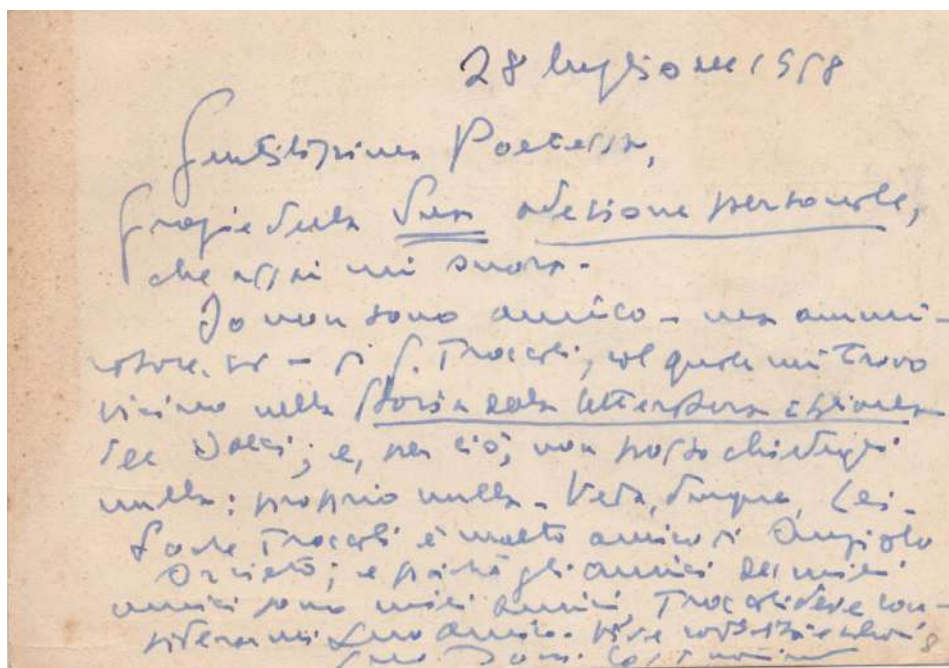 28 luglio del 1958
Gentilissima Poetessa,
grazie della Sua adesione personale,
che assai mi onora.
Io non sono amico - ma ammi-
ratore, sì - di G. Troccoli, col quale mi trovo
vicino nella Storia della letteratura italiana
del Dolci; e, per ciò, non posso chiedergli
nulla: proprio nulla. Veda, dunque, Lei.
Forse Troccoli è molto amico di Angiolo
Orvieto; e poiché gli amici dei miei
amici sono miei amici, Troccoli deve con-
siderarmi Suo amico.
8